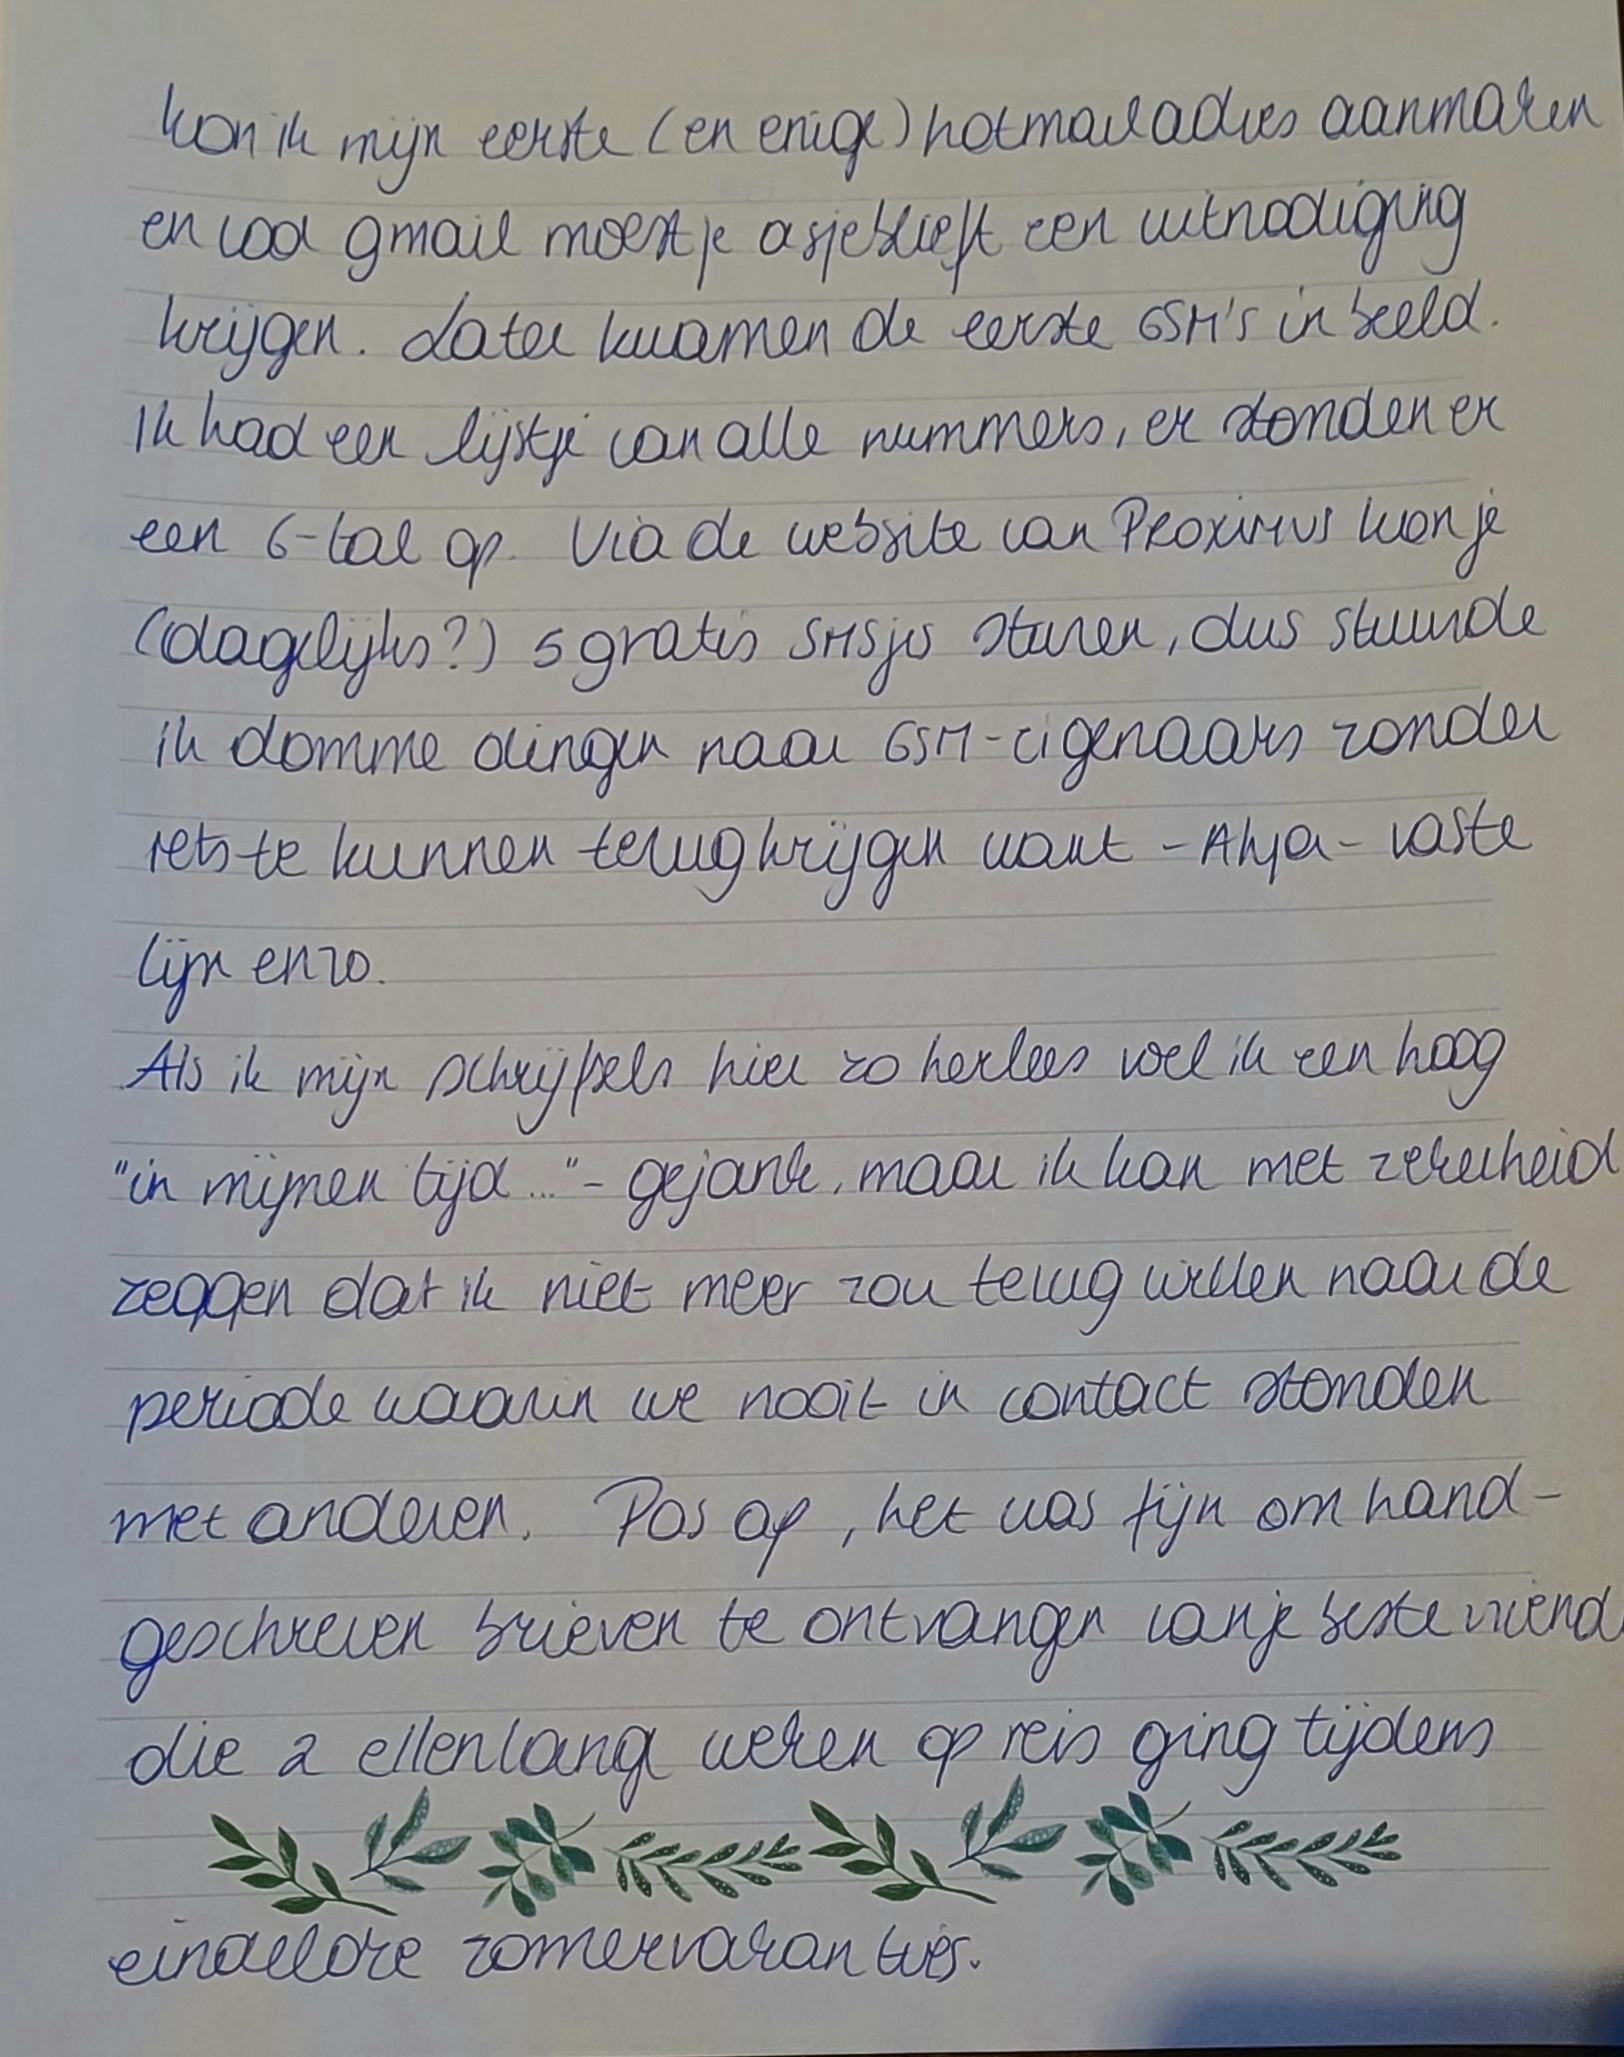 kon ik mijn eerste (en enige) hotmailadres aanmaken
en voor gmail moest je asjeblieft een uitnodiging
krijgen. Later kwamen de eerste GSM's in beeld.
Ik had een lijstje van alle nummers, er stonden er
een 6-tal op. Via de website van Proximus kon je
(dagelijks?) 5 gratis SMSjes sturen, dus stuurde
ik domme dingen naar GSM-eigenaars zonder
iets te kunnen terugkrijgen want - Ahja - vaste
lijn enzo.
Als ik mijn schrijfsels hier zo herlees voel ik een hoog
"in mijnen tijd..." - gejank, maar ik kan met zekerheid
zeggen dat ik niet meer zou terug willen naar de
periode waarin we nooit in contact stonden
met anderen. Pas op, het was fijn om hand-
geschreven brieven te ontvangen van je beste vriend
die 2 ellenlange weken op reis ging tijdens
eindeloze zomervakanties.